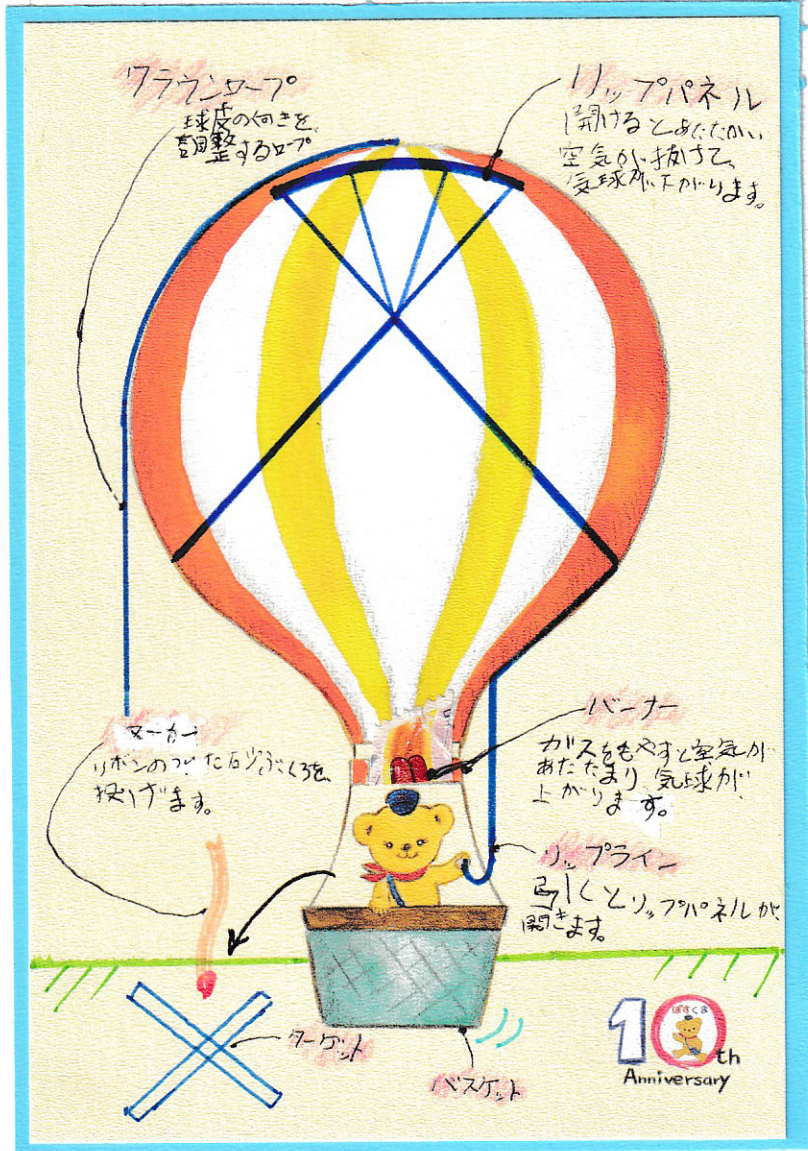 クラウンロープ
球皮の向きを
調整するロープ
リップパネル
開けるとあたたかい
空気が抜けて、
気球が下がります。
マーカー
リボンのついた砂ぶくろを
投げます。
バーナー
ガスをもやすと空気が
あたたまり 気球が
上がります。
リップライン
引くとリップパネルが
開きます。
ターゲット
バスケット
ぽすくま
10th
Anniversary